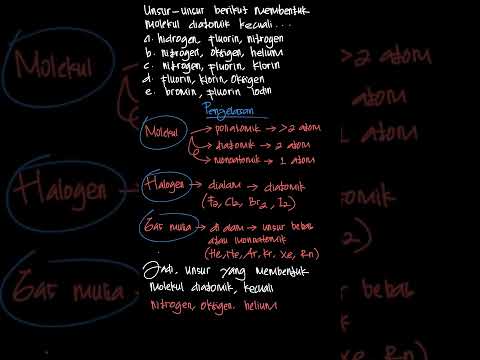 Unsur-unsur berikut membentuk
molekul diatomik kecuali...
a. hidrogen, fluorin, nitrogen
b. nitrogen, oksigen, helium
c. nitrogen, fluorin, klorin
d. fluorin, klorin, oksigen
e. bromin, fluorin iodin
Penjelasan
Molekul
→ poliatomik → >2 atom
→ diatomik → 2 atom
→ monoatomik → 1 atom
Halogen → dialam → diatomik
(F2, Cl2, Br2, I2)
Gas mulia → di alam → unsur bebas
atau monoatomik
(He, Ne, Ar, Kr, Xe, Rn)
Jadi, unsur yang membentuk
molekul diatomik, kecuali
nitrogen, oksigen, helium
Molekul
2 atom
atom
1 atom
Halogen
2)
Gas mulia
bebas
Rn)